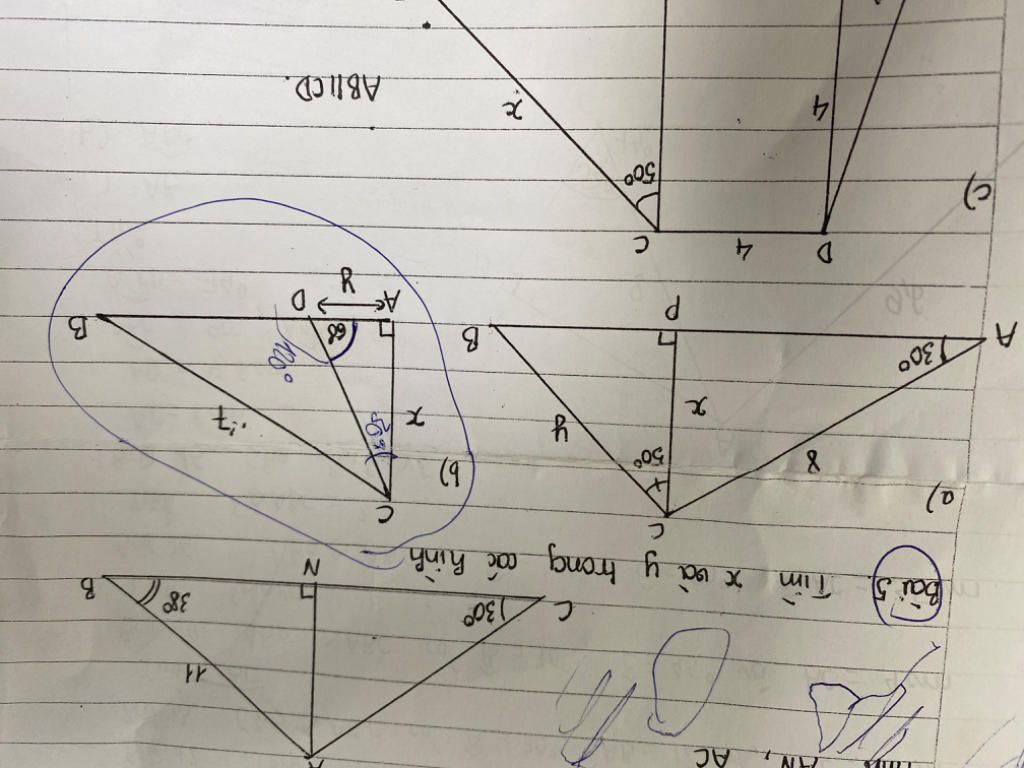 AN, AC
11
30°
38°
C
N
B
Bài 5. Tìm x và y trong các hình
a)
C
8
50°
x
y
30°
A
P
B
b)
C
x
7
120°
A
y
D
B
c)
D
4
C
50°
4
x
AB//CD.